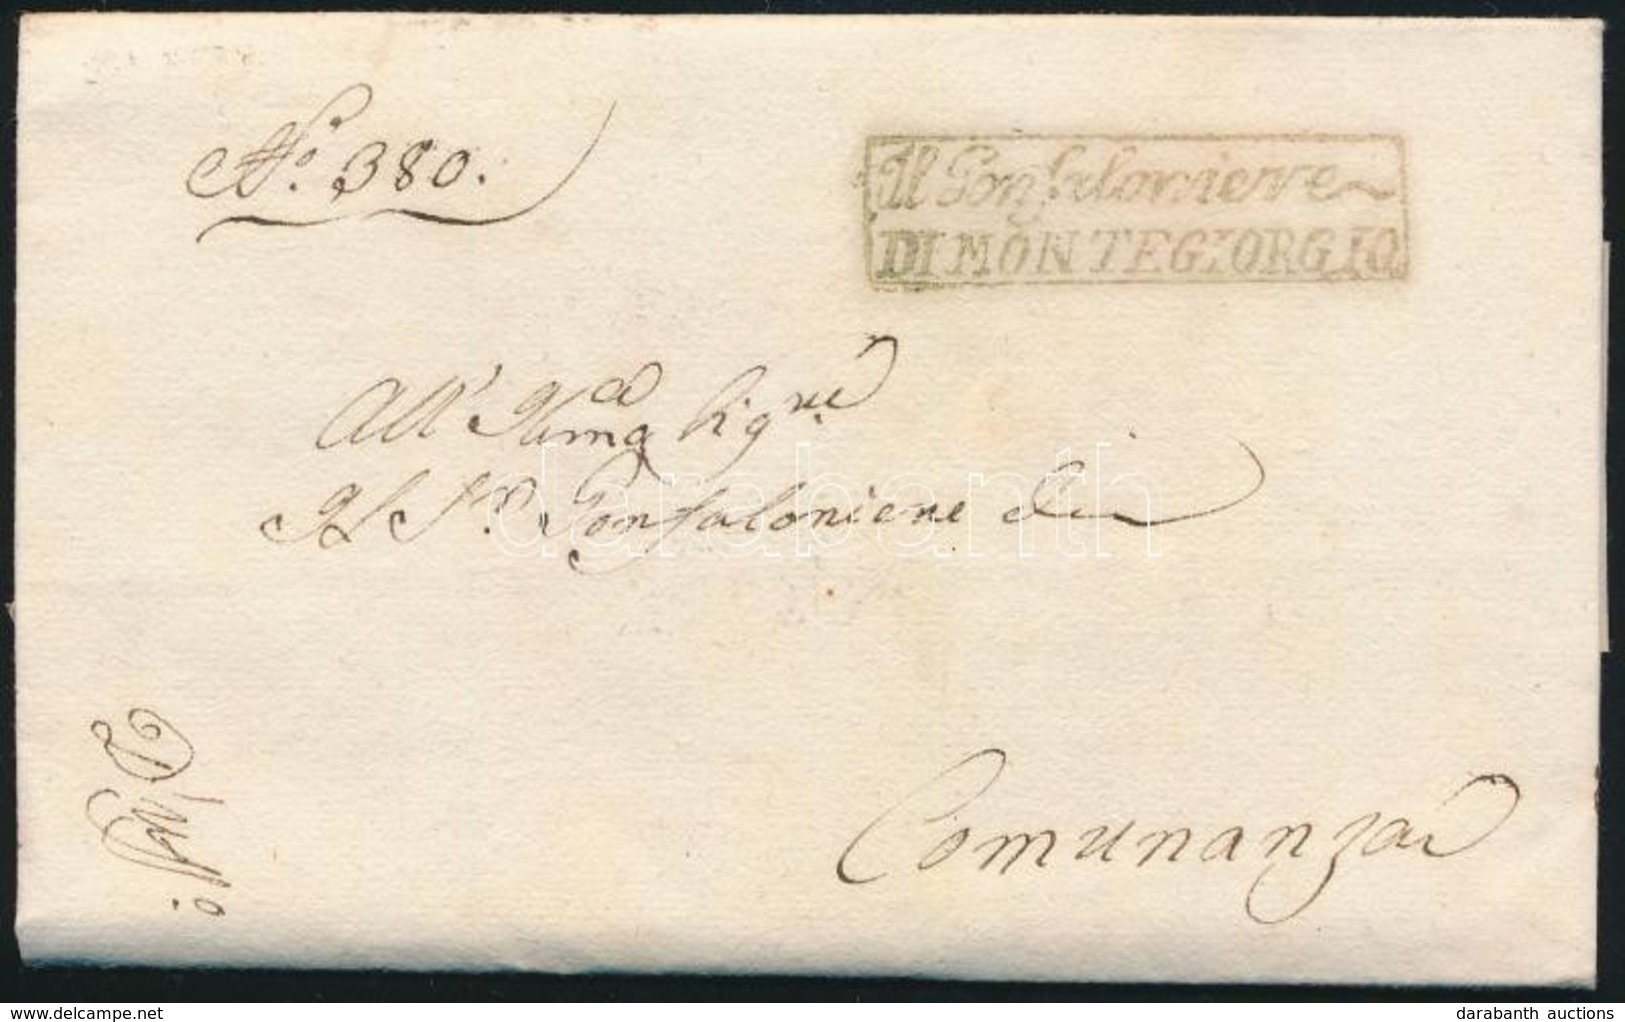 No. 380.
Il Gonfaloniere
DI MONTEGIORGIO
All' Illma Sigre
Il Sr Gonfaloniere di
Comunanza
D'Uff:o
darabanth
delcampe.net
darabanth auctions